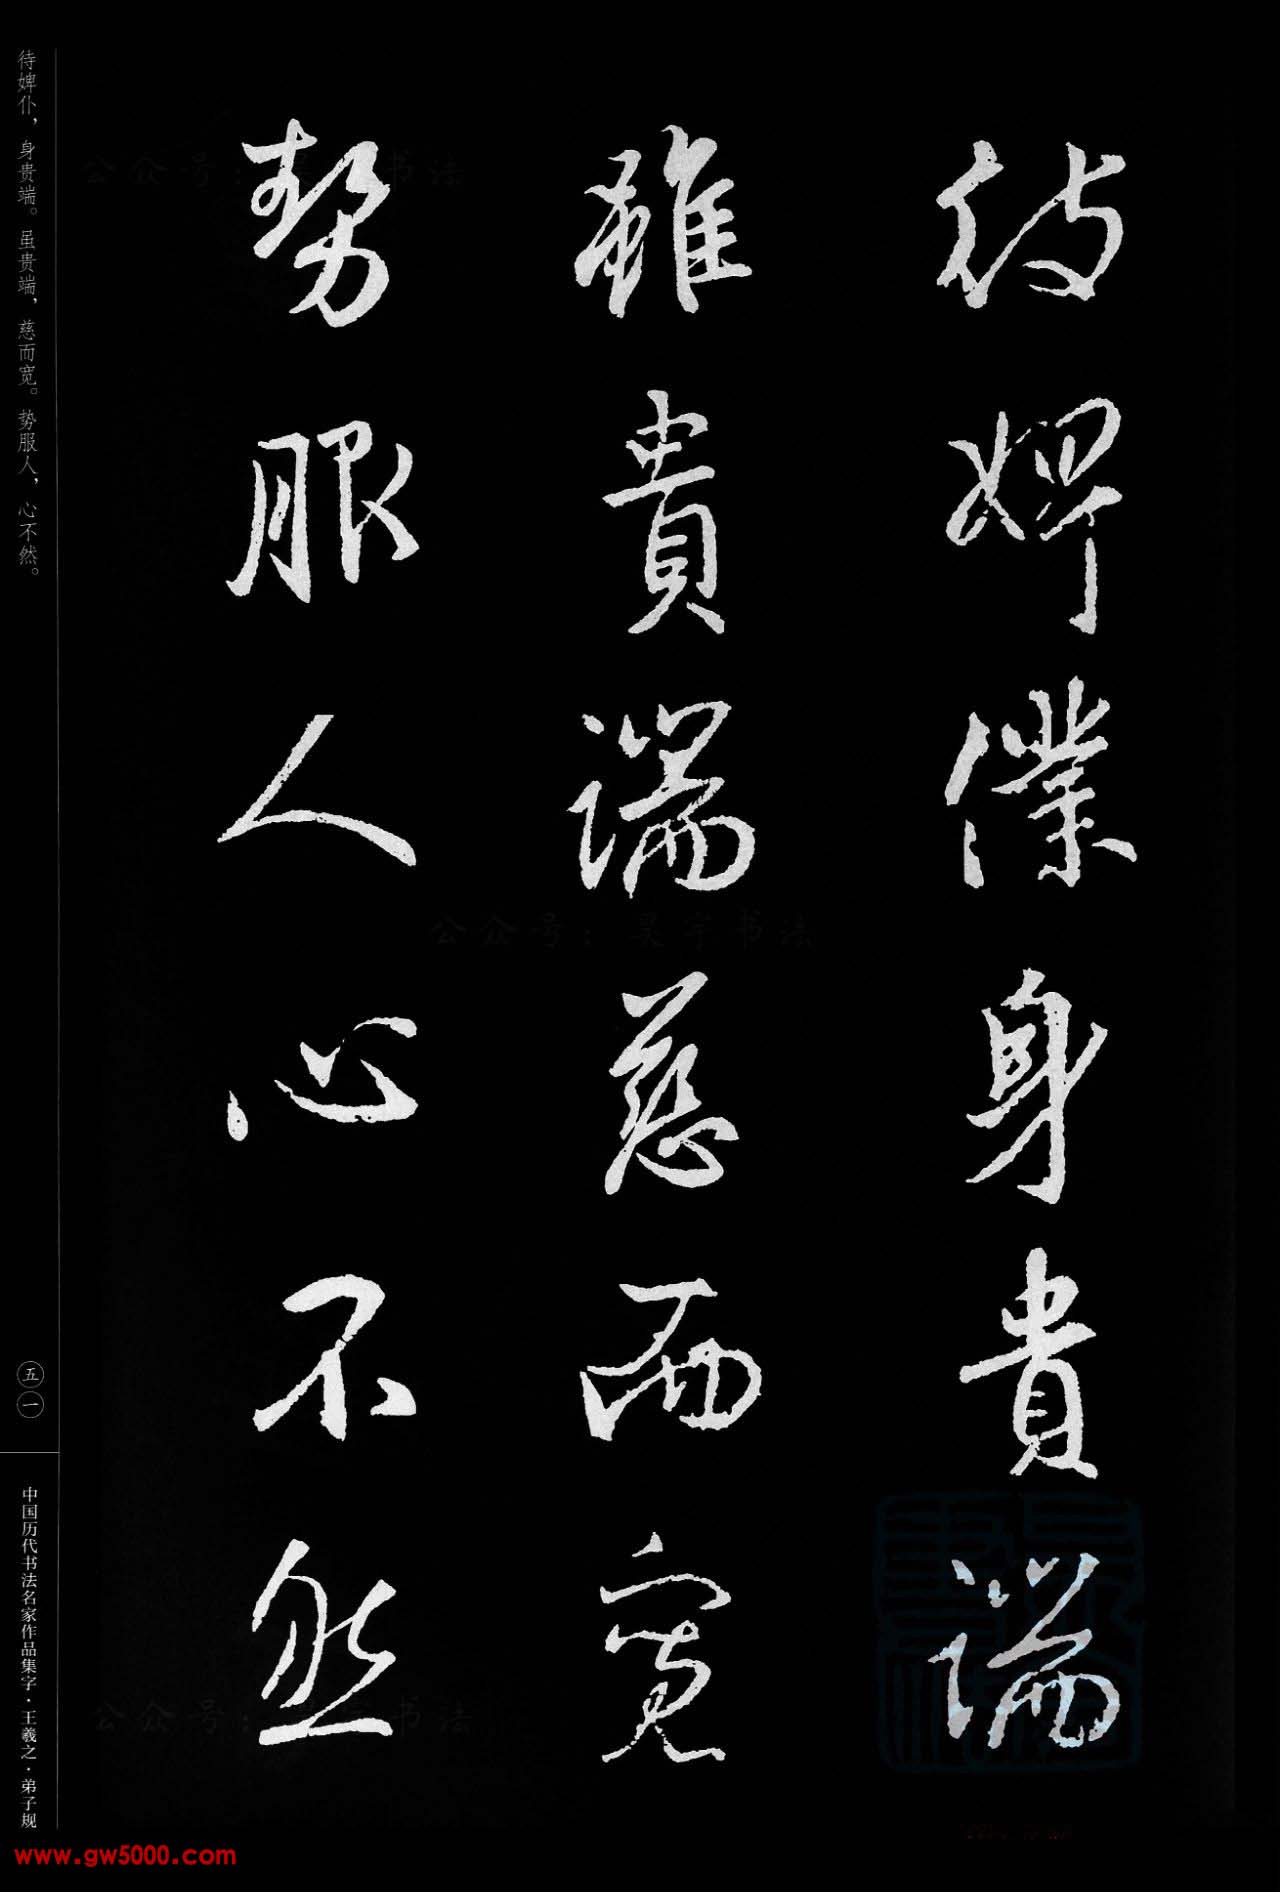 待婢僕身貴端
雖貴端慈而寬
勢服人心不然
待婢仆，身贵端。虽贵端，慈而宽。势服人，心不然。
五一
中国历代书法名家作品集字·王羲之·弟子规
公众号：昊宇书法
www.gw5000.com